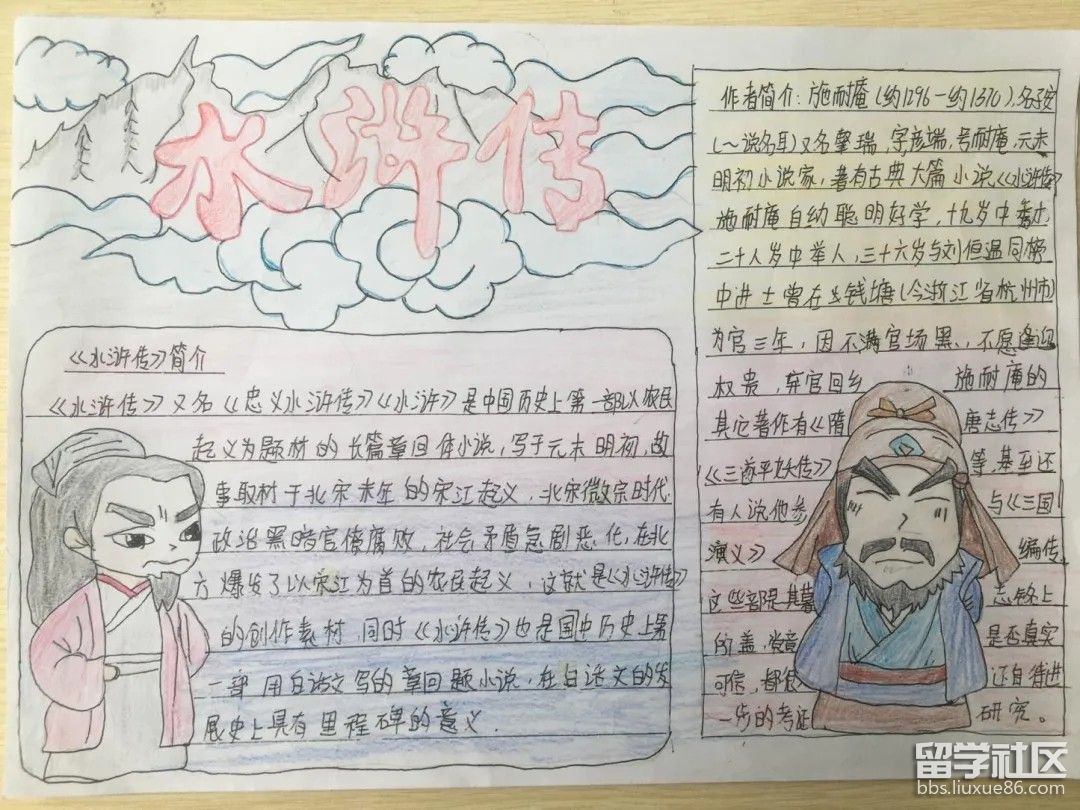 水浒传
《水浒传》简介
《水浒传》又名《忠义水浒传》《水浒》是中国历史上第一部以农民
起义为题材的长篇章回体小说，写于元末明初，故
事取材于北宋末年的宋江起义，北宋微宗时代
政治黑暗官僚腐败，社会矛盾急剧恶化，在北
六爆发了以宋江为首的农民起义，这就是《水浒传》
的创作素材同时《水浒传》也是国中历史上第
一部用白话文写的章回题小说，在白话文的发
展史上具有里程碑的意义.
作者简介：施耐庵(约1296一约1370).名子安
(一说名耳)又名肇瑞，字彦端，号耐庵，元末
明初小说家，著有古典大篇小说《水浒传》
施耐庵自幼聪明好学，十九岁中秀才
二十人岁中举人，三十六岁与刘伯温同榜
中进士曾在钱塘(今浙江省杭州市)
为官三年，因不满官场黑，不愿逢迎
权贵，弃官回乡 施耐庵的
其它著作有《隋 唐志传》
《三遂平妖传》 等，甚至还
有人说他参 与《三国
演义》 编传
这些都是其墓 志铭上
的盖，究竟 是否真实
可信，都 还自待进
一步的考证 研究。
留学社区
bbs.liuxue86.com